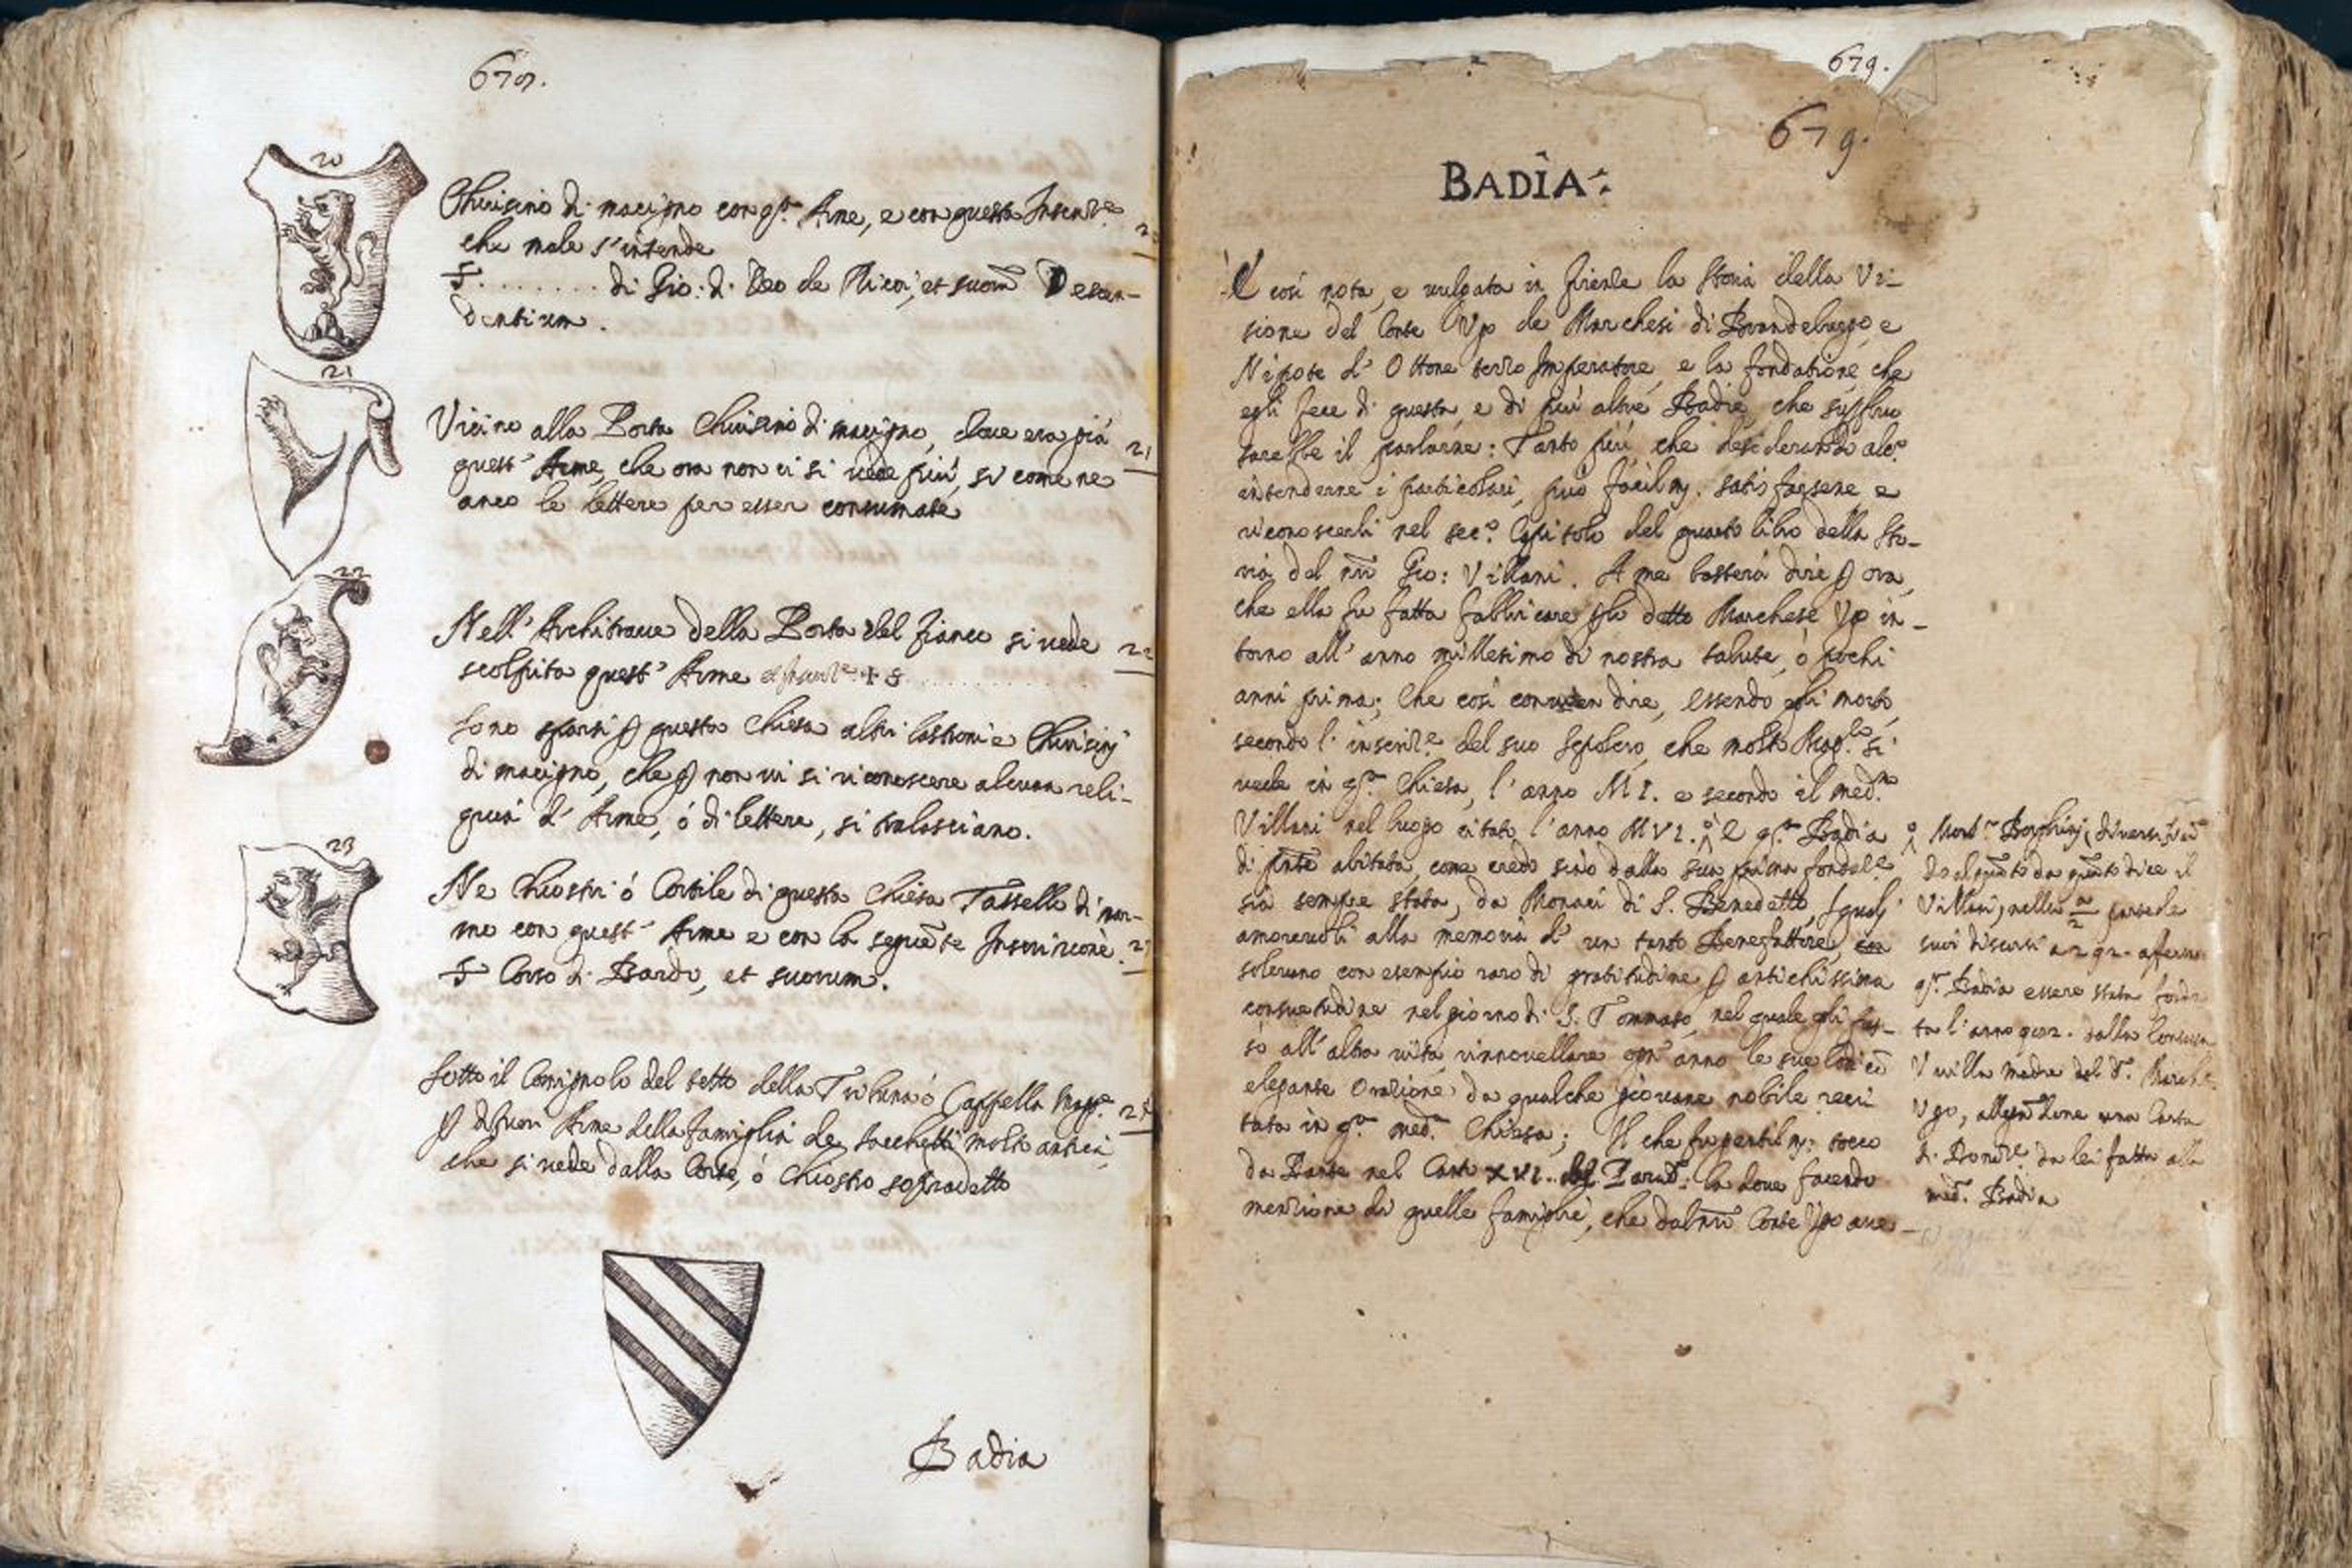 678.
20
Chiusino di macigno con q.ta Arme, e con questa Inscriz.e
che male s'intende
S. . . . . . . . di Gio: di Deo de Ricci, et suor̃ Descen-
dentium.
21
Vicino alla Porta Chiusino di macigno, dove era già
quest' Arme, che ora non ci si vede più, si come ne
anco le lettere per esser consumate
21
22
Nell' Architrave della Porta del fianco si vede
scolpita quest' Arme et Inscriz.e + S. . . . . . . . .
22
Sono sparsi p questa Chiesa altri lastroni e Chiusinj
di macigno, che p non vi si riconoscere alcuna reli-
quia d' Arme, ó di lettere, si tralasciano.
23
Ne Chiostri ó Cortile di questa Chiesa Tassello di mar-
mo con quest' Arme e con la seguẽte Inscrizione.
S Corso di Bardo, et suorum.
Sotto il Comignolo del tetto della Tribuna ó Cappella Magg.e
p di fuori Arme della famiglia de Sacchetti molto antica,
che si vede dalla Corte, ó Chiostro sopradetto
24
Badia
679.
679.
BADÌA:
È così nota, e vulgata in Firenze la Storia della Vi-
sione del Conte Vgo de Marchesi di Brandeburgo, e
Nipote d' Ottone terzo Imperatore, e la fondatione che
egli fece di questa, e di più altre Badie, che supfluo
sarebbe il parlarne: Tanto più che desiderando alc.o
intenderne i particolari, può facilm. satisfarsene e
riconoscerli nel sec.o Capitolo del quarto libro della Sto-
ria del nr̃o Gio: Villani. A me basterà dire p ora,
che ella fu fatta fabbricare dal detto Marchese Vgo in-
torno all' anno millesimo di nostra salute, ò pochi
anni prima; Che così convien dire, essendo egli morto,
secondo l' inscriz.e del suo Sepolcro, che molto Mag.co si
vede in q.ta Chiesa, l' anno MI. e secondo il med.mo
Villani nel luogo citato l'anno MVI. E q.ta Badia
di p̃nte abitata, come credo sino dalla sua prima fondaz.e
sia sempre stata, da Monaci di S. Benedetto, i qualj
amorevoli alla memoria d' un tanto Benefattore,
solevano con esempio raro di gratitudine p antichissima
consuetudine nel giorno di S. Tommaso, nel quale egli pas-
sò all' altra vita, rinnovellare ogn' anno le sue lodi cõ
elegante Orazione da qualche giovane nobile reci
tata in q.ta med.a Chiesa; Il che fu gentilm: tocco
da Dante nel Canto XVI. del Parad: la dove facendo
menzione di quelle famiglie, che dal nr̃o Conte Vgo ave-
Mons.r Borghinj, diversificã
do alquãto da quãto dice il
Villani, nella 2.a parte de
suoi discorsi a 292. afferma
q.ta Badia essere stata fonda
ta l' anno 992. dalla Contessa
Vuilla madre del d.o March.e
Vgo, allegãdone una Carta
di Donaz.e da lei fatta alla
med.a Badia